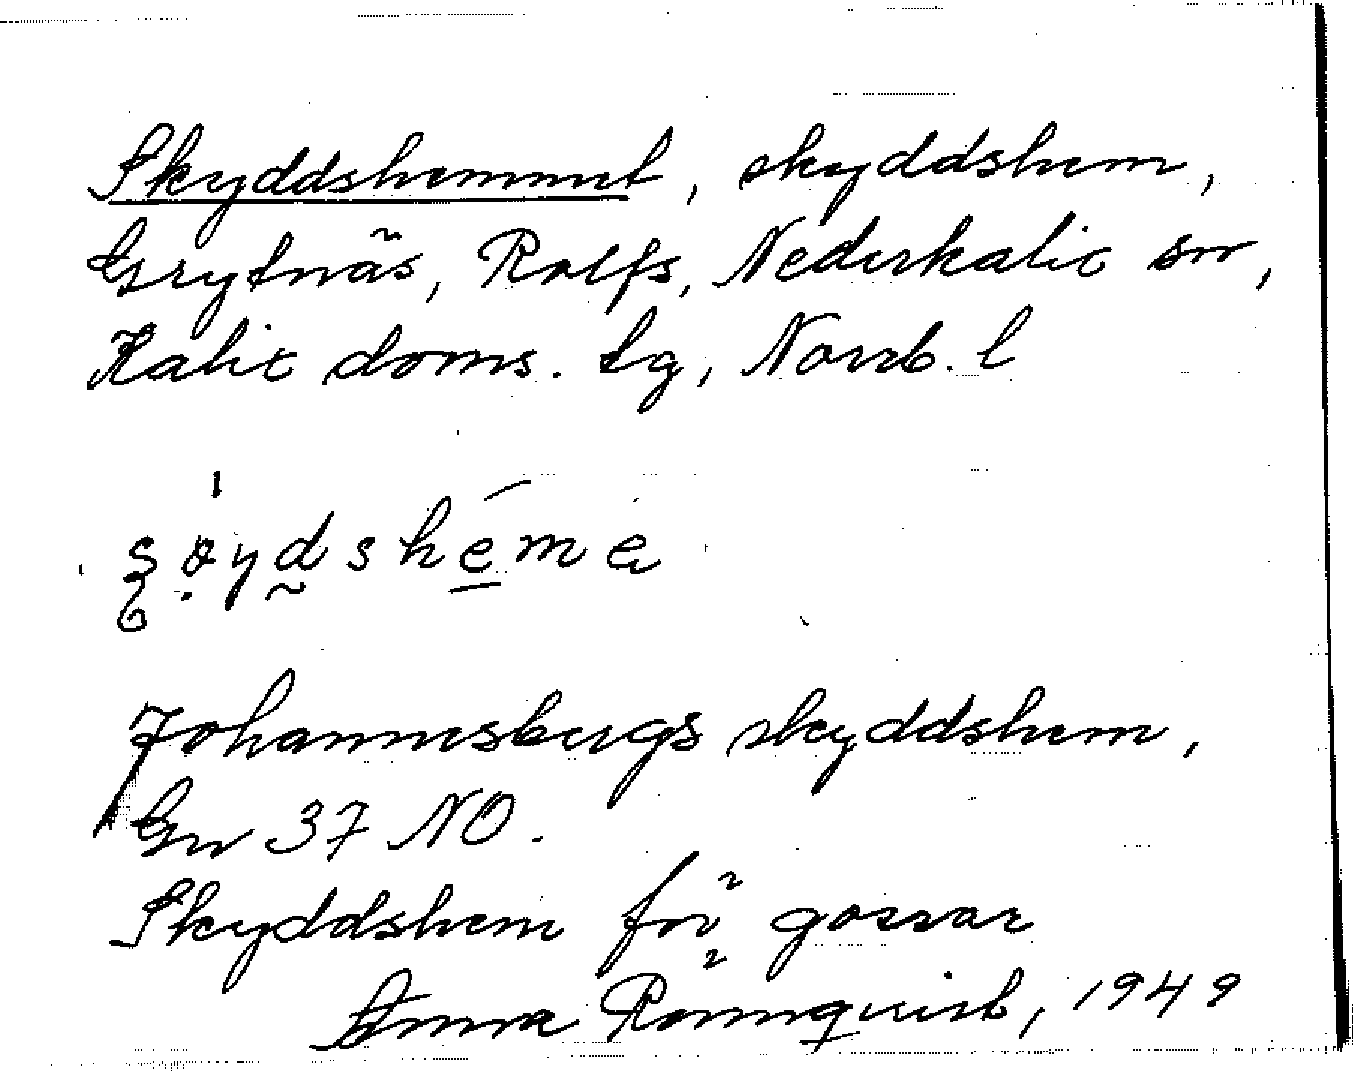 Skyddshemmet, skyddshem,
Grytnäs, Rolfs, Nederkalix sn,
Kalix doms. tg, Norrb. l
Johannesbergs skyddshem,
Gn 37 NO.
Skyddshem för gossar
Anna Rönnquist, 1949